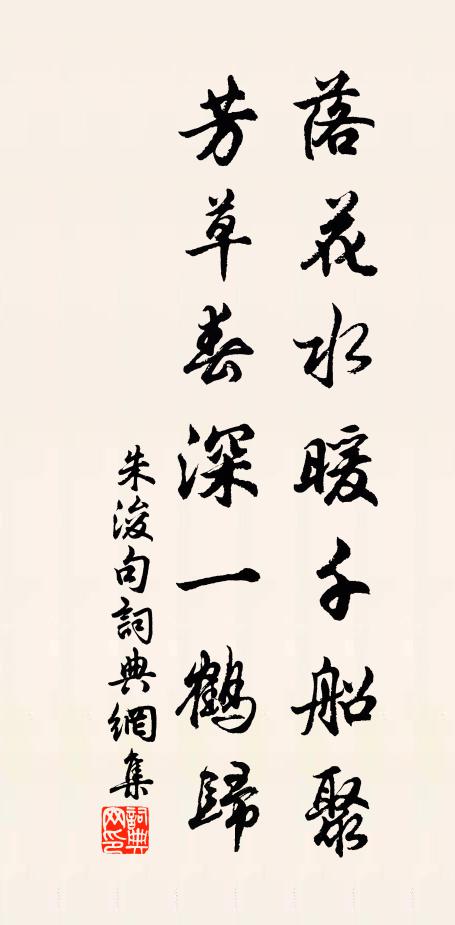 落花水暖千船聚
芳草春深一鶴歸
朱浚句詞典網集
詞典網印